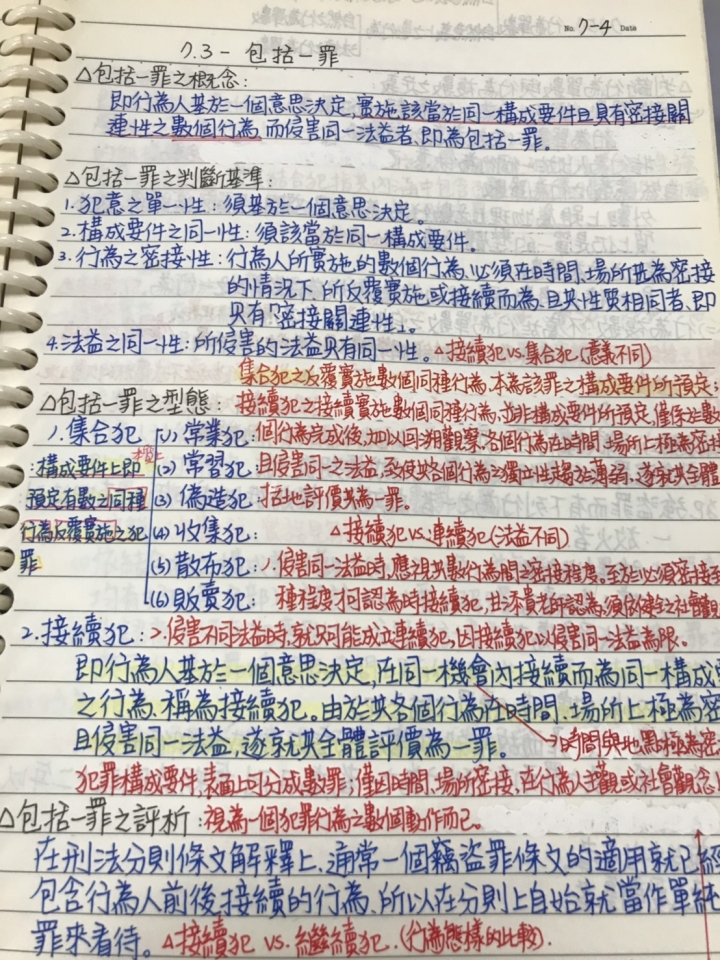 No. 7-4 Date
7.3 - 包括一罪
△包括一罪之概念:
即行為人基於一個意思決定,實施該當於同一構成要件且具有密接關
連性之數個行為,而侵害同一法益者、即為包括一罪。
△包括一罪之判斷基準:
1.犯意之單一性:須基於一個意思決定。
2.構成要件之同一性:須該當於同一構成要件。
3.行為之密接性:行為人所實施的數個行為、必須在時間、場所甚為密接
的情況下、所反覆實施或接續而為、且其性質相同者、即
具有「密接關連性」。
4.法益之同一性:所侵害的法益具有同一性。△接續犯vs.集合犯(意義不同)
集合犯之反覆實施數個同種行為、本為該罪之構成要件所預定;
△包括一罪之型態:接續犯之接續實施數個同種行為,並非構成要件所預定,僅係於數
1.集合犯 (1)常業犯:個行為完成後,加以回溯觀察、各個行為在時間、場所上極為密接
:構成要件上即 (2)常習犯:且侵害同一之法益,致使其各個行為之獨立性趨於薄弱、遂就其全體
預定有數之同種 (3)偽造犯:括地評價其為一罪。
行為反覆實施之犯 (4)收集犯: △接續犯vs.連續犯(法益不同)
罪 (5)散布犯:1.侵害同一法益時,應視其數行為間之密接程度。至於必須密接至
(6)販賣犯:種程度才可認為時接續犯,老師認為,須依健全之社會觀
2.接續犯:2.侵害不同法益時,就只可能成立連續犯,因接續犯以侵害同一法益為限。
即行為人基於一個意思決定,在同一機會內接續而為同一構成
之行為、稱為接續犯。由於其各個行為在時間、場所上極為密
且侵害同一法益、遂就其全體評價為一罪。 時間與地點極為密
犯罪構成要件,表面上可分成數罪;僅因時間、場所密接,在行為人主觀或社會觀念
△包括一罪之評析:視為一個犯罪行為之數個動作而已。
在刑法分則條文解釋上、通常一個竊盜罪條文的適用就已經
包含行為人前後接續的行為、所以在分則上自始就當作單純
罪來看待。△接續犯 vs. 繼續犯.(行為態樣的比較).